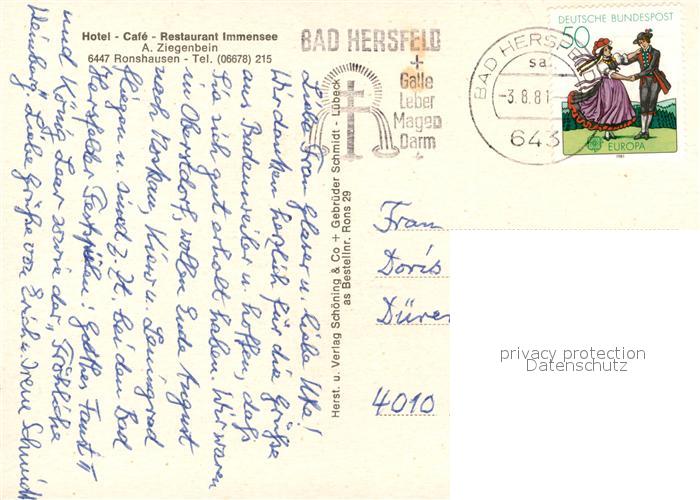 Hotel - Café - Restaurant Immensee
A. Ziegenbein
6447 Ronshausen - Tel. (06678) 215
BAD HERSFELD
+
Galle
Leber
Magen
Darm
+
BAD HERSFE
sa
-3.8.81
643
DEUTSCHE BUNDESPOST
50
EUROPA
1981
Liebe Frau Glaser u. liebe Uta!
Wir danken herzlich für die Grüße
aus Badenweiler u. hoffen, daß
Sie sich gut erholt haben. Wir waren
in Oberstdorf, wollen Ende August
nach Moskau, Kiew u. Leningrad
fliegen u. sind z. Zt. bei den Bad
Hersfelder Festspielen: Goethes Faust II
und König Lear sowie der "Fröhliche
Weinberg". Liebe Grüße von Erich u. Irene Schmidt
Herst. u. Verlag Schöning & Co + Gebrüder Schmidt - Lübeck
as Bestellnr. Rons 29
Frau
Doris
Düre
4010
privacy protection
Datenschutz